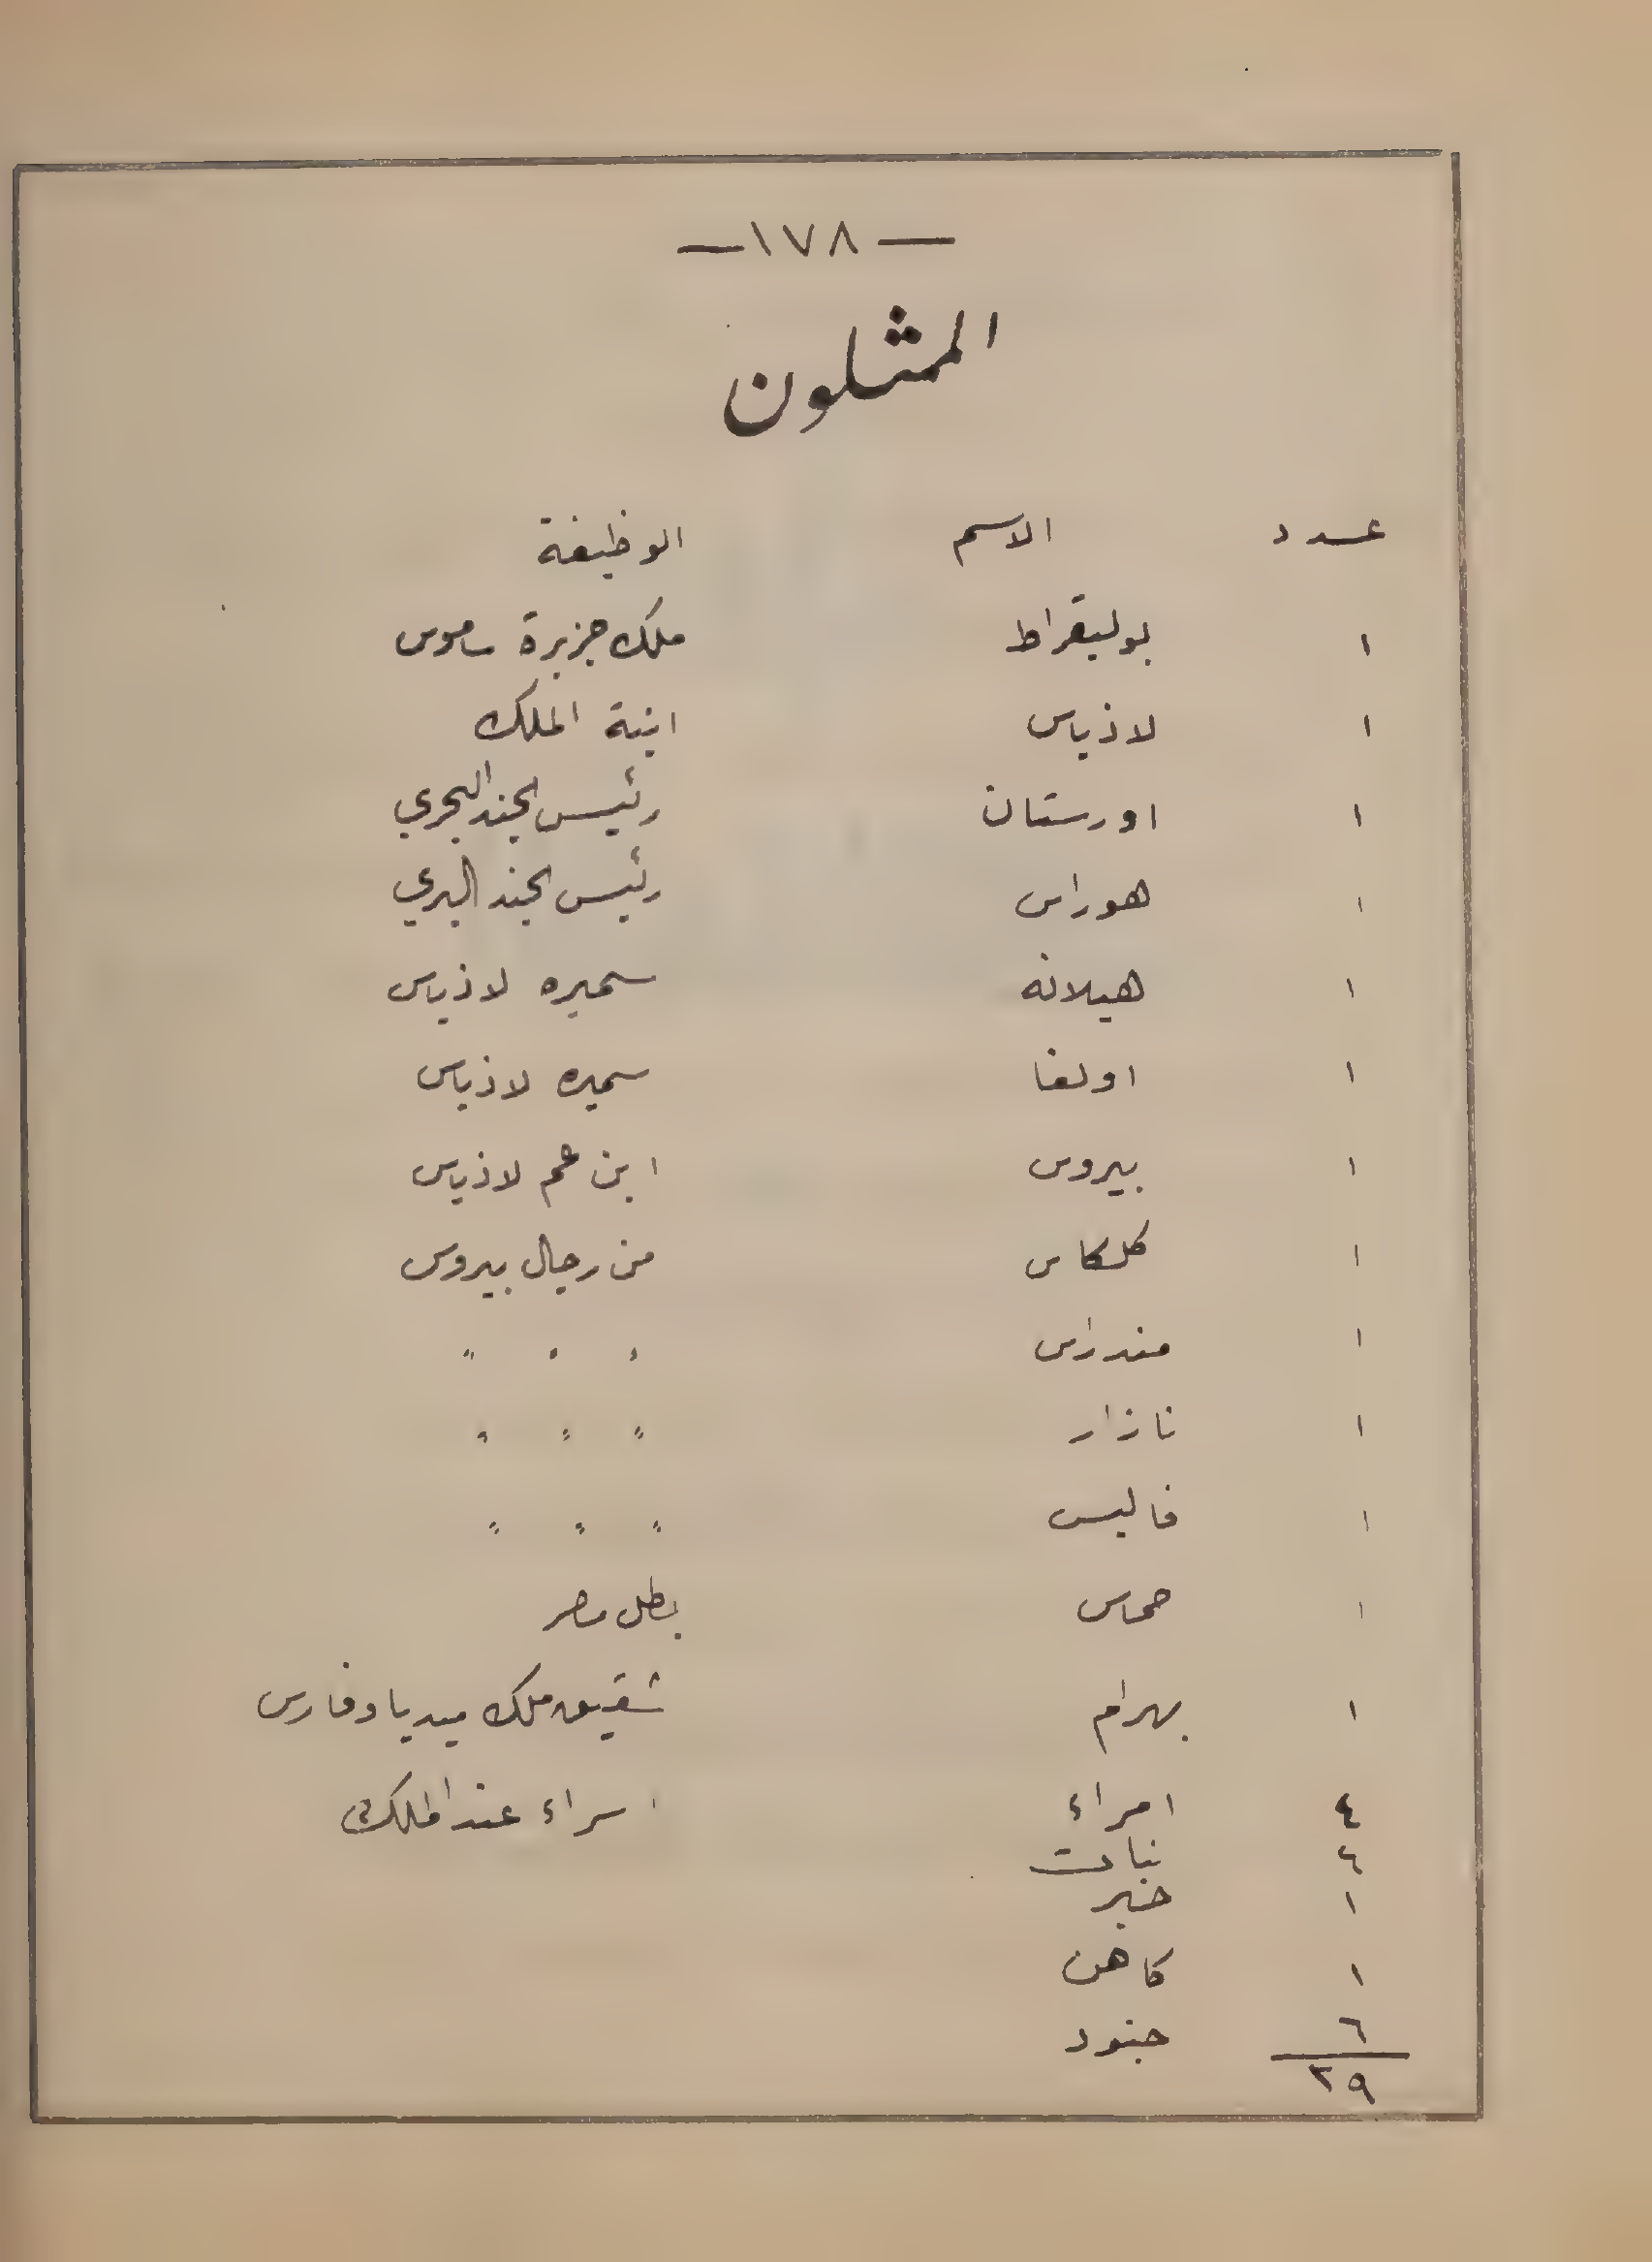 — ١٧٨ —
الممثلون
عدد الاسم الوظيفة
١ بوليقراط ملك جزيرة ساموس
١ لاذياس ابنة الملك
١ اورستان رئيس الجند البحري
١ هوراس رئيس الجند البري
١ هيلانه سميره لاذياس
١ اولغا سميره لاذياس
١ بيروس ابن عم لاذياس
١ كلكاس من رجال بيروس
١ مندراس " " "
١ نازار " " "
١ فاليس " " "
١ حماس بطل مصر
١ بهرام شقيق ملك ميديا وفارس
٤ امراء اسراء عند الملك
٤ بنات
١ خبير
١ كاهن
٦ جنود
٢٩